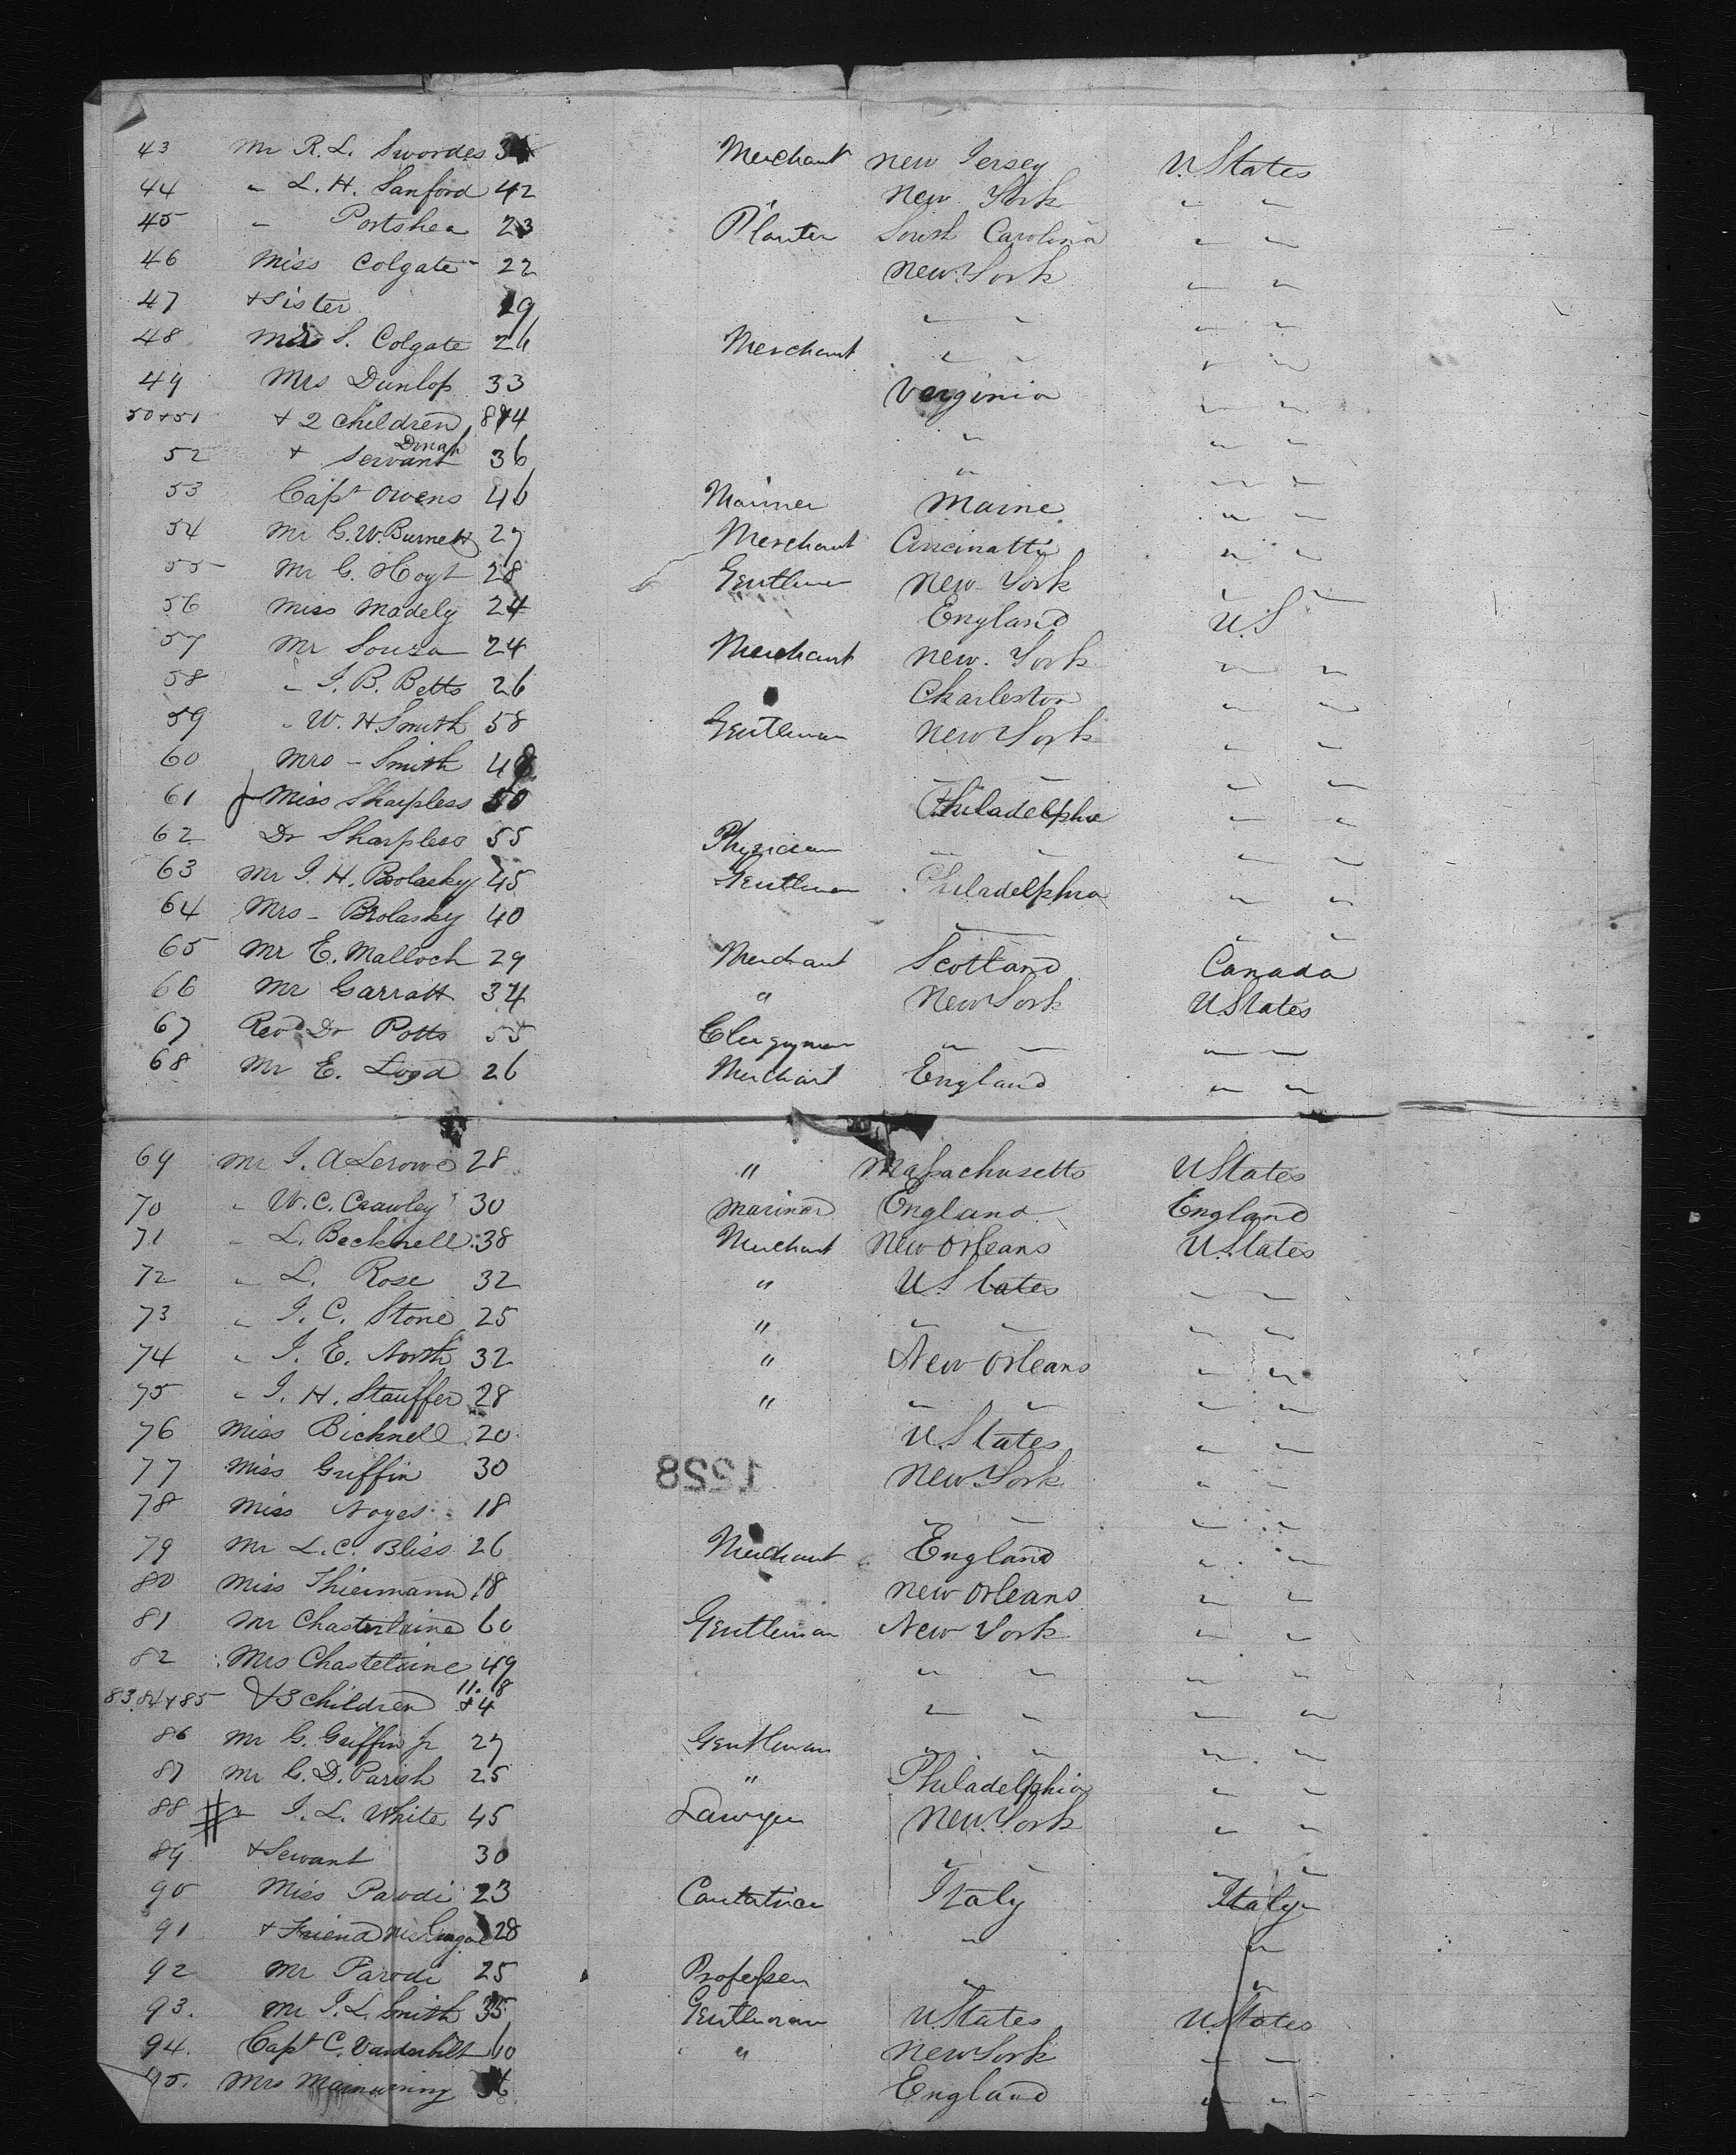 43 Mr R. L. Swordes Merchant New Jersey U. States
44 " L. H. Sanford 42 " New York " "
45 " Portshea 23 Planter South Carolina " "
46 Miss Colgate 22 New York " "
47 + Sister 19 " " " "
48 Mr S. Colgate 26 Merchant " " " "
49 Mrs Dunlop 33 Virginia " "
50+51 + 2 children 8 + 4 " " "
52 + Servant Dinah 36 " " "
53 Capt Owens 46 Mariner Maine " "
54 Mr G. W. Burnett 27 Merchant Cincinatti " "
55 Mr G. Hoyt 28 Gentleman New York " "
56 Miss Madely 24 England U.S
57 Mr Souza 24 Merchant New York " "
58 " J. B. Betts 26 Charleston " "
59 " W. H. Smith 58 Gentleman New York " "
60 Mrs - Smith 48 " " " "
61 Miss Sharpless 50 Philadelphia " "
62 Dr Sharpless 55 Physician " " " "
63 Mr J. H. Brolasky 45 Gentleman Philadelphia " "
64 Mrs - Brolasky 40 " " "
65 Mr E. Malloch 29 Merchant Scotland Canada
66 Mr Garratt 34 " New York U States
67 Revd Dr Potts 55 Clergyman " " " "
68 Mr E. Loyd 26 Merchant England " "
69 Mr J. A Lerowe 28 " Massachusetts U States
70 " W. C. Crawley 30 Mariner England England
71 " L. Becknell 38 Merchant New Orleans U. States
72 " L. Rose 32 " U. States " "
73 " J. C. Stone 25 " " " " "
74 " J. E. North 32 " New Orleans " "
75 " J. H. Stauffer 28 " " " " "
76 Miss Bicknell 20 U. States " "
77 Miss Griffin 30 New York " "
1228
78 Miss Noyes 18 " " " "
79 Mr L. C. Bliss 26 Merchant England " "
80 Miss Thiermann 18 New Orleans " "
81 Mr Chastelaine 60 Gentleman New York " "
82 Mrs Chastelaine 49 " " " "
83.84+85 + 3 children 11. 8 + 4 " " " "
86 Mr G. Griffin jr 27 Gentleman " " " "
87 Mr G. D. Parish 25 " Philadelphia " "
88 # " J. L. White 45 Lawyer New York " "
89 + Servant 30 " " " "
90 Miss Parodi 23 Cantatrice Italy Italy
91 + Friend 28 " "
92 Mr Parodi 25 Professor " "
93. Mr J. L. Smith 35 Gentleman U States U. States
94. Capt C. Vanderbilt 60 " New York " "
95. Mrs Mainwering 36 England " "